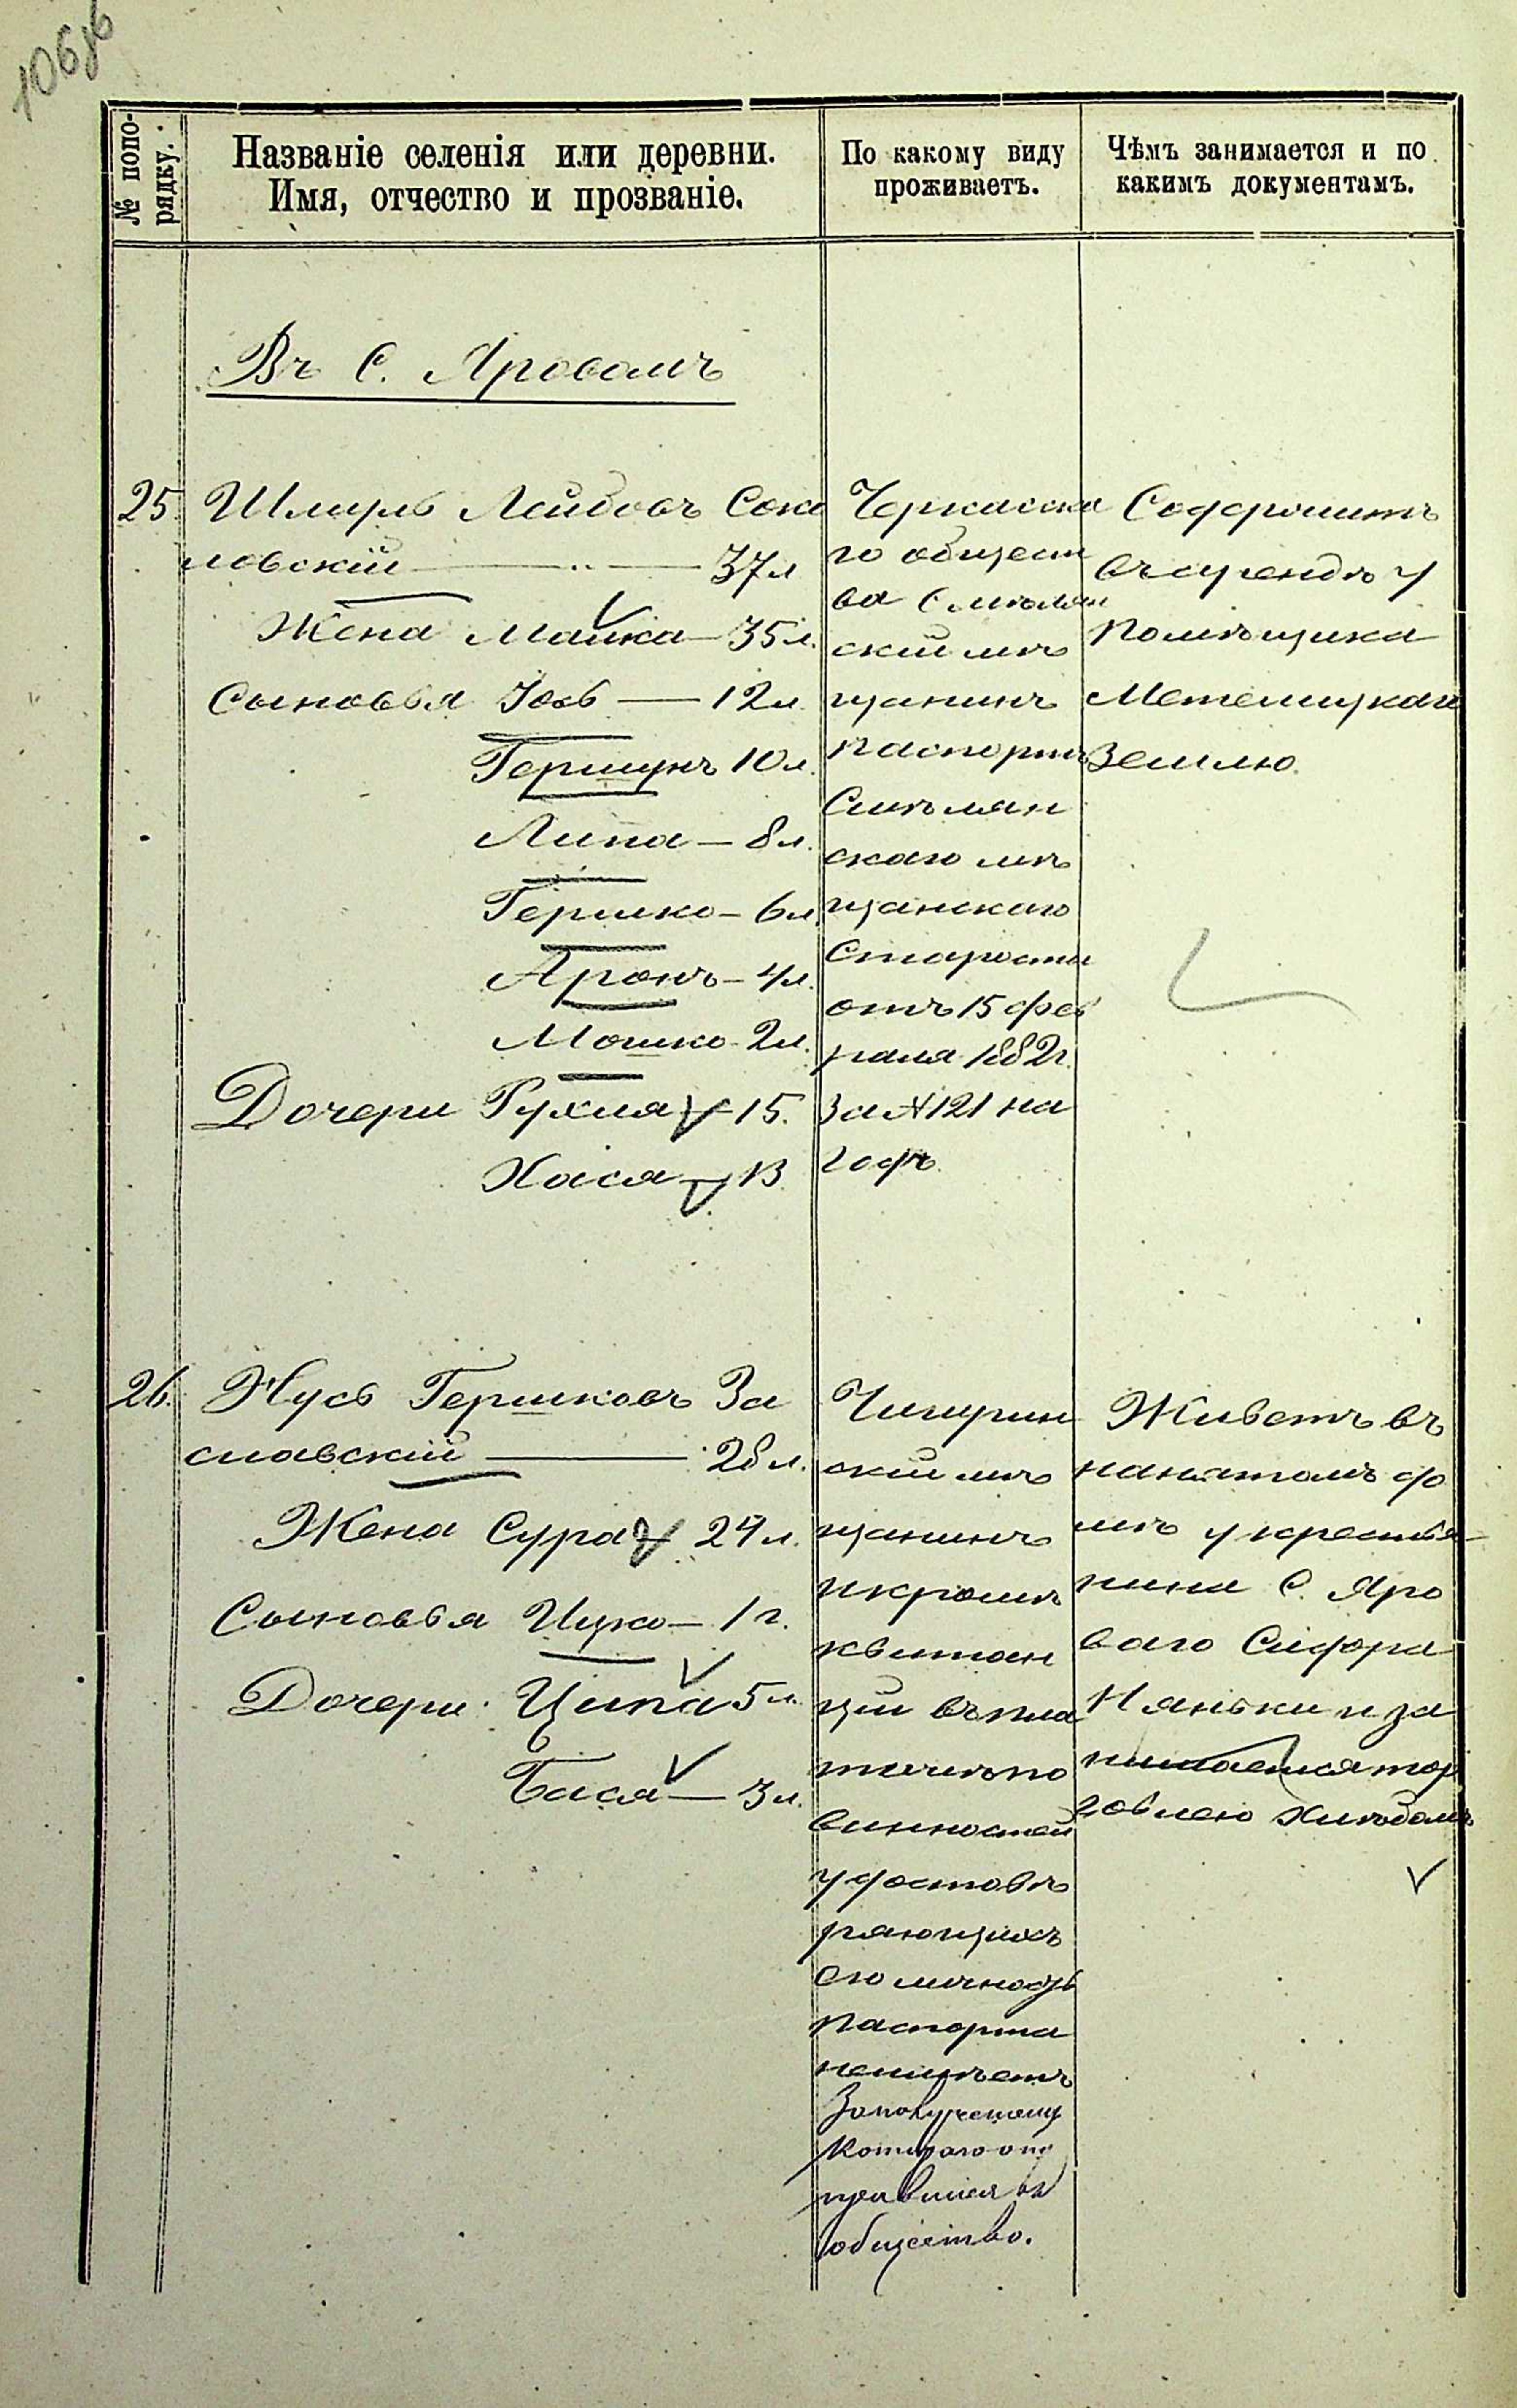 106об
№ попо-
рядку.
Названіе селенія или деревни.
Имя, отчество и прозваніе.
По какому виду
проживаетъ.
Чѣмъ занимается и по
какимъ документамъ.
Въ С. Яровомъ
25. Шмуль Лейбовъ Соко
ловскій 37 л
Жена Малка 35 л.
Сыновья Іось — 12 л.
Гершунъ 10 л.
Липа — 8 л.
Гершко — 6 л.
Аронъ — 4 л.
Мошко 2 л.
Дочери Рухля — 15.
Хася — 13
Черкасска
го общест
ва Смѣлян
скій мѣ
щанинъ
паспортъ
Смѣлян
скаго мѣ
щанскаго
Старосты
отъ 15 фев
раля 1882 г.
За № 121 на
годъ.
Содержитъ
въ арендѣ у
помѣщика
землю.
26. Нусь Гершковъ За
славскій — 28 л.
Жена Сура 24 л.
Сыновья Ицко — 1 г.
Дочери Ципа 5 л.
Бася — 3 л.
Чигирин
скій мѣ
щанинъ
и кромѣ
квитан
ціи въ пла
тежѣ по
винностей
удостовѣ
ряющихъ
его личность
паспорта
неимѣетъ
За полученіемъ
котораго отп
равился въ
общество.
Живетъ въ
нанятомъ до
мѣ у крестья-
нина С. Яро
ваго Сидора
Няньки и за
нимается тор
говлею хлѣбомъ